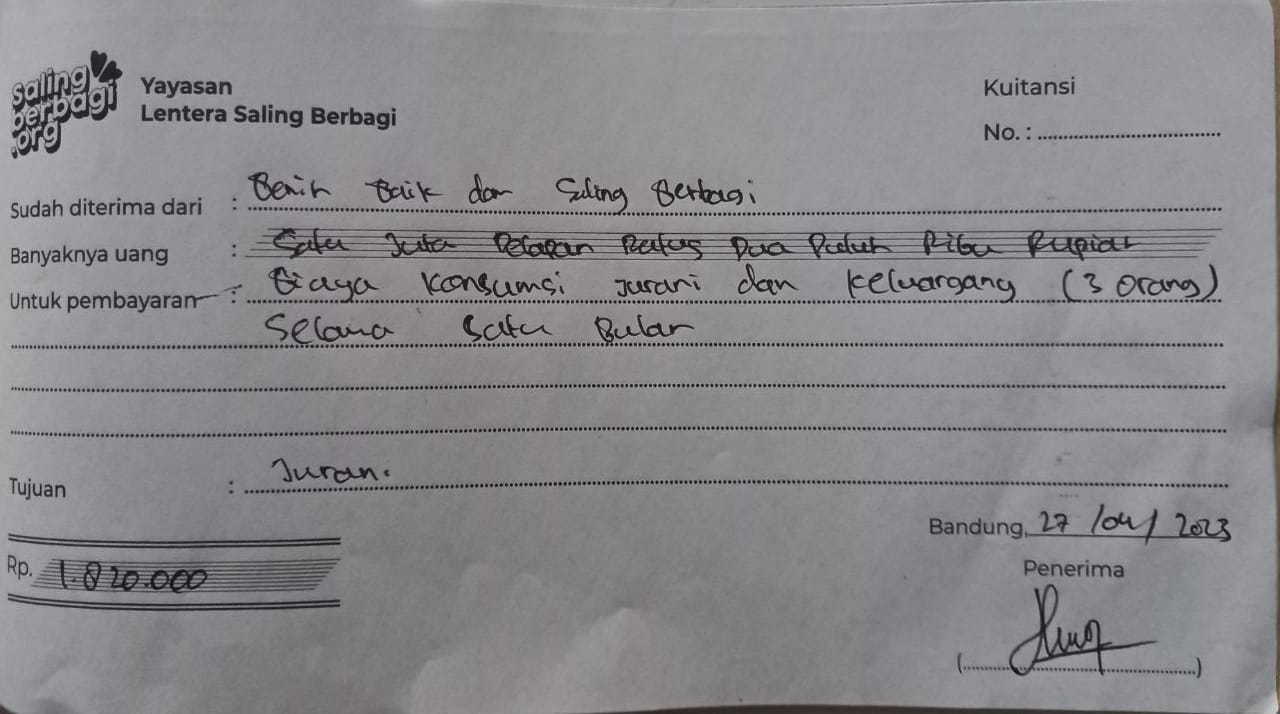 saling
berbagi
.org
Yayasan
Lentera Saling Berbagi
Kuitansi
No. :
Sudah diterima dari : Benih Baik dan Saling Berbagi
Banyaknya uang : Satu Juta Delapan Ratus Dua Puluh Ribu Rupiah
Untuk pembayaran : Biaya Konsumsi Jurani dan Keluargang (3 orang)
Selama Satu Bulan
Tujuan : Jurani
Bandung, 27 /04/ 2023
Rp. 1.820.000
Penerima
(
)